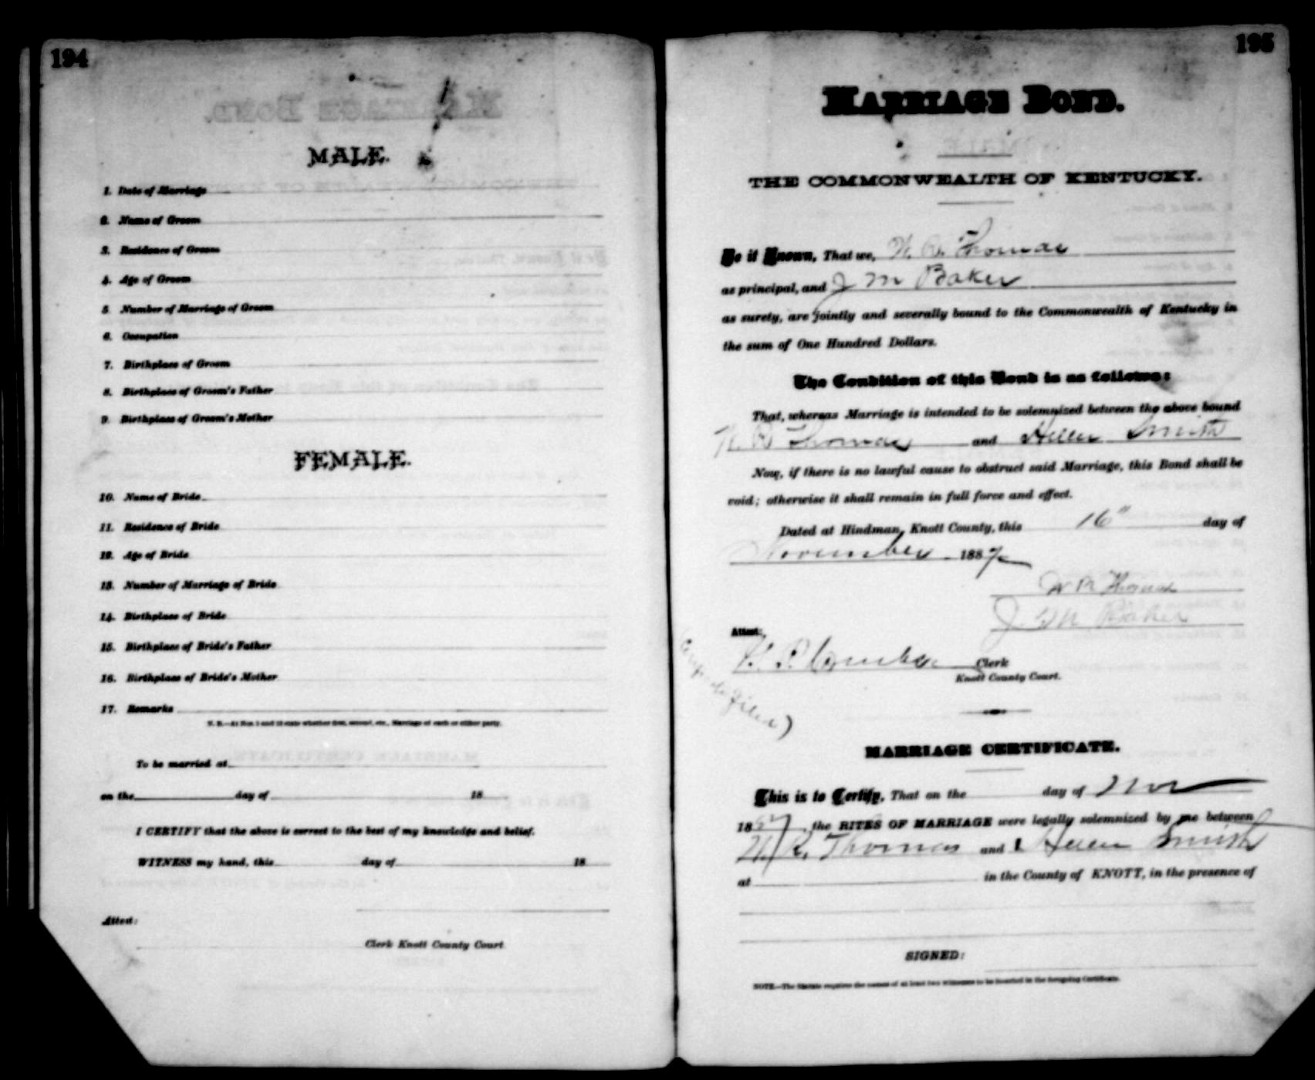 194
MALE.
1. Date of Marriage
2. Name of Groom
3. Residence of Groom
4. Age of Groom
5. Number of Marriage of Groom
6. Occupation
7. Birthplace of Groom
8. Birthplace of Groom's Father
9. Birthplace of Groom's Mother
FEMALE.
10. Name of Bride
11. Residence of Bride
12. Age of Bride
13. Number of Marriage of Bride
14. Birthplace of Bride
15. Birthplace of Bride's Father
16. Birthplace of Bride's Mother
17. Remarks
N. B.—At Nos 5 and 13 state whether first, second, etc., Marriage of each or either party.
To be married at
on the day of 18
I CERTIFY that the above is correct to the best of my knowledge and belief.
WITNESS my hand, this day of 18
Attest:
Clerk Knott County Court
195
MARRIAGE BOND.
THE COMMONWEALTH OF KENTUCKY.
Be it Known, That we, W. R. Thomas
as principal, and J M Baker
as surety, are jointly and severally bound to the Commonwealth of Kentucky in
the sum of One Hundred Dollars.
The Condition of this Bond is as follows:
That, whereas Marriage is intended to be solemnized between the above bound
W. R Thomas and Hellen Smith
Now, if there is no lawful cause to obstruct said Marriage, this Bond shall be
void; otherwise it shall remain in full force and effect.
Dated at Hindman, Knott County, this 16" day of
November 1887
W R Thomas
J M Baker
Attest:
Clerk
Knott County Court.
MARRIAGE CERTIFICATE.
This is to Certify, That on the day of Nov
1887, the RITES OF MARRIAGE were legally solemnized by me between
W. R. Thomas and Hellen Smith
at in the County of KNOTT, in the presence of
SIGNED:
NOTE.—The Statute requires the names of at least two witnesses to be inserted in the foregoing Certificate.